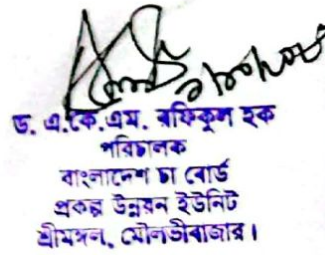 ড. এ.কে.এম. রফিকুল হক
পরিচালক
বাংলাদেশ চা বোর্ড
প্রকল্প উন্নয়ন ইউনিট
শ্রীমঙ্গল, মৌলভীবাজার।